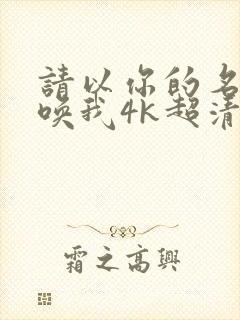 請以你的名
喚我4K超清
霜之高興